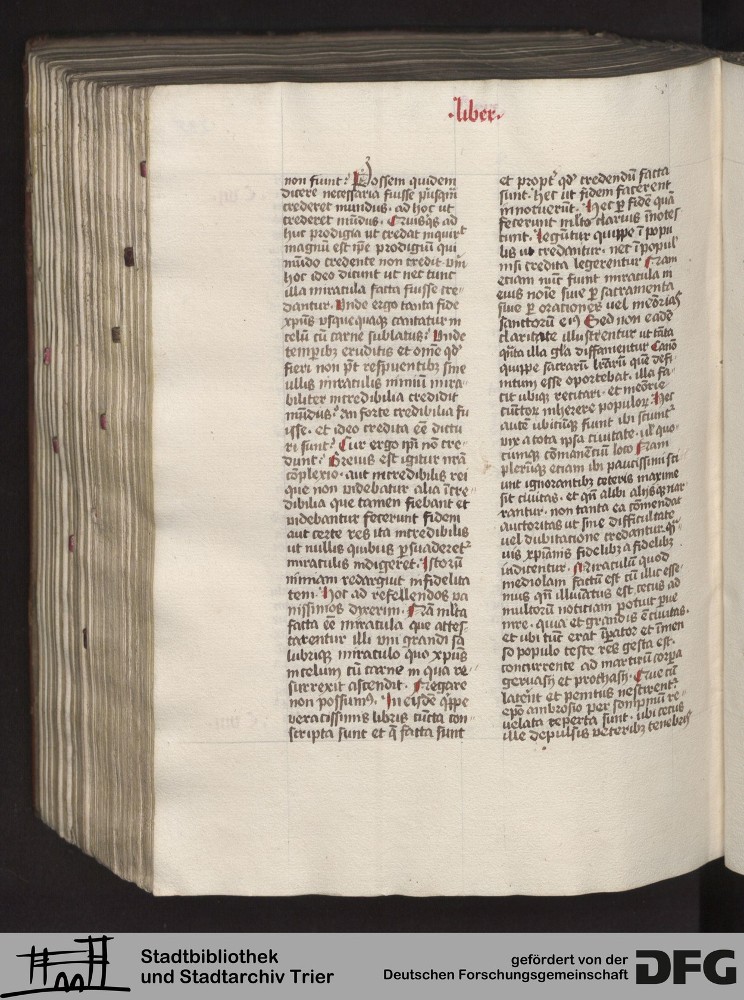 ·liber·
non fiunt? Possem quidem
dicere necessaria fuisse p̄usqm̄
crederet mundus· ad hoc ut
crederet mūdus· Quisqs ad
huc prodigia ut credat inquirit
magnū est ip̄e prodigiū qui
mūdo credente non credit·
hoc ideo dicunt ut nec tunc
illa miracula facta fuisse cre-
dantur· Vnde ergo tanta fide
xp̄us usquequaq; cantatur in
celū cū carne sublatus? Vnde
temporib; eruditis et om̄e qd̄
fieri non pt̄ respuentib; sine
ullis miraculis nimiū mira-
biliter incredibilia credidit
mūdus? An forte credibilia fu
isse· et ideo credita eē dictu
ri sunt? Cur ergo ip̄i nō cre-
dunt? Breuis est igitur nrā
cōplexio· aut incredibilis rei
que non uidebatur alia īcre-
dibilia que tamen fiebant et
uidebantur fecerunt fidem
aut certe res ita incredibilis
ut nullis quibus p̱suaderet᷑
miraculis indigeret· Istorū
nimiam redarguit infidelita
tem· Hoc ad refellendos ua
nissimos dixerim· Nā ml̄ta
facta eē miracula que attes
tarentur illi uni grandi sa
lubriq; miraculo quo xp̄us
in celum cū carne in qua re-
surrexit ascendit· Negare
non possumꝰ· In eisdē q̄ppe
ueracissimis libris cūcta con-
scripta sunt et q̄ facta sunt
et propt̄ qd̄ credendū facta
sunt· Hec ut fidem facerent
innotuerūt· Hec p̱ fidē quā
fecerunt ml̄to clarius īnotes
cunt· Legūtur quippe ī popu
lis ut credantur· nec ī popul̄
nisi credita legerentur Nam
etiam nūc fiunt miracula in
eius noīe siue p̱ sacramenta
siue p̱ orationes uel meōrias
sanctorū eiꝰ Sed non eadē
claritate illustrentur ut tāta
qūta illa gl̄a diffamentur Canō
quippe sacrarū lrārū quē defi-
nitum esse oportebat· illa fa-
cit ubiq; recitari· et meōrie
cūctor inherere populor· Hec
autē ubicūq; fiunt ibi sciunt᷑
uix a tota ipsa ciuitate· ul̄ quo-
cumq; cōmanentiū loco Nam
plerūq; etiam ibi paucissimi sci-
unt ignorantib; ceteris maxime
sit ciuitas· et qn̄ alibi alijsq; nar-
rantur· non tanta ea cōmendat
auctoritas ut sine difficultate
uel dubitatione credantur· q̄
uis xp̄ianis fidelib; a fidelib;
indicentur· Miraculū quod
mediolani factū est cū illic esse-
mus qn̄ illūatus est cecus ad
multorū notitiam potuit pue
nire· quia et grandis ē ciuitas·
et ibi tūc erat īp̱ator et īmen
so populo teste res gesta est·
concurrente ad martirū corp̱a
geruasij et prothasij· Que cū
laterēt et penitus nescirent᷑
ep̄o ambrosio per sompnium re-
uelata reperta sunt· ubi cecus
ille depulsis ueterib; tenebris
Stadtbibliothek
und Stadtarchiv Trier
gefördert von der
Deutschen Forschungsgemeinschaft
DFG